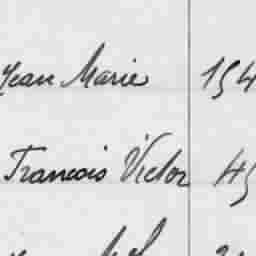 Jean Marie 154
Francois Victor 45